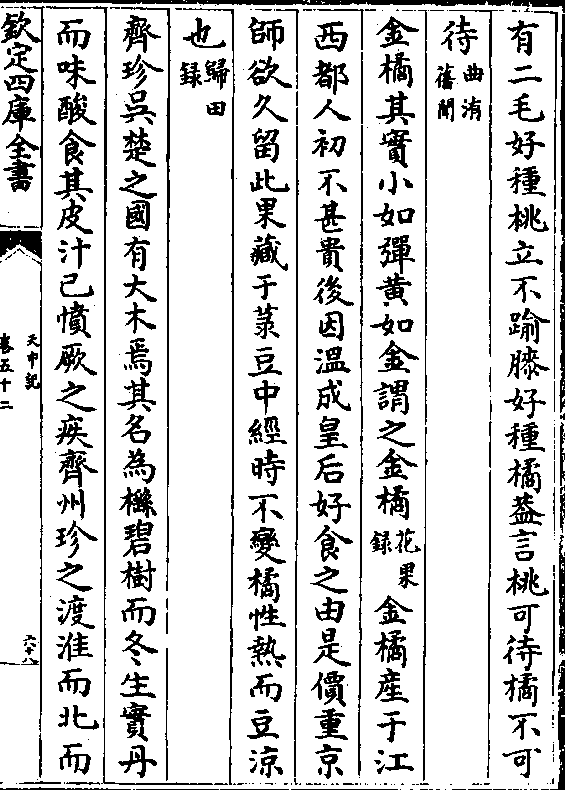 有二毛好種桃立不踰膝好種橘葢言桃可待橘不可
待曲洧舊聞
金橘其實小如彈黄如金謂之金橘花果録金橘産于江
西都人初不甚貴後因温成皇后好食之由是價重京
師欲久留此果藏于菉豆中經時不變橘性熱而豆涼
也歸田録
齊珍吳楚之國有大木焉其名為櫾碧樹而冬生實丹
而味酸食其皮汁已憤厥之疾齊州珍之渡淮而北而
欽定四庫全書
天中記
卷五十二
六十八